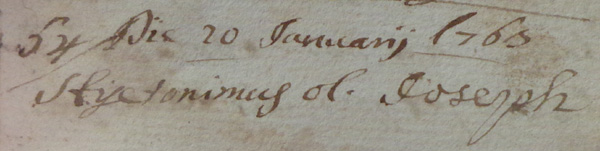 54 Die 20 Januarij 1763
Hyeronimus ol. Joseph